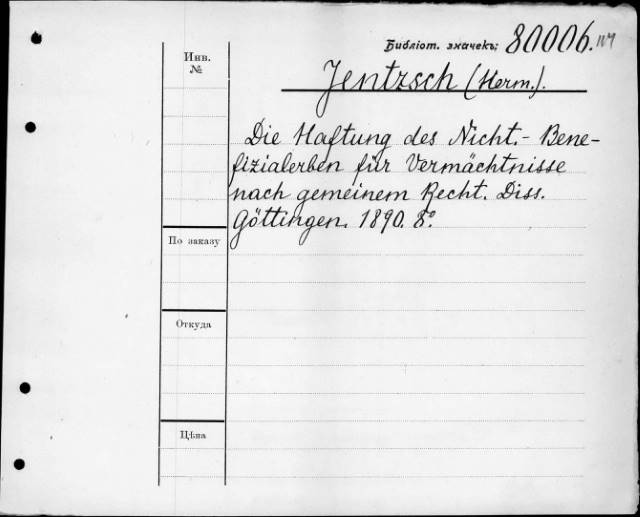 Библіот. значекъ: 80006.
Инв.
№
Jentzsch (Herm.).
Die Haftung des Nicht.-Bene-
fizialerben für Vermächtnisse
nach gemeinem Recht. Diss.
Göttingen. 1890. 8º.
По заказу
Откуда
Цѣна